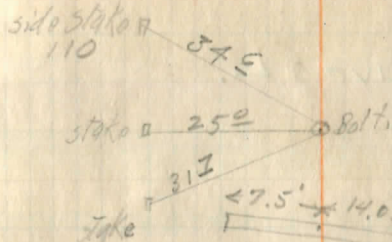 side stake
110
34 5
stake 25 0 Bolt
31 1
stake
7.5' 14.0